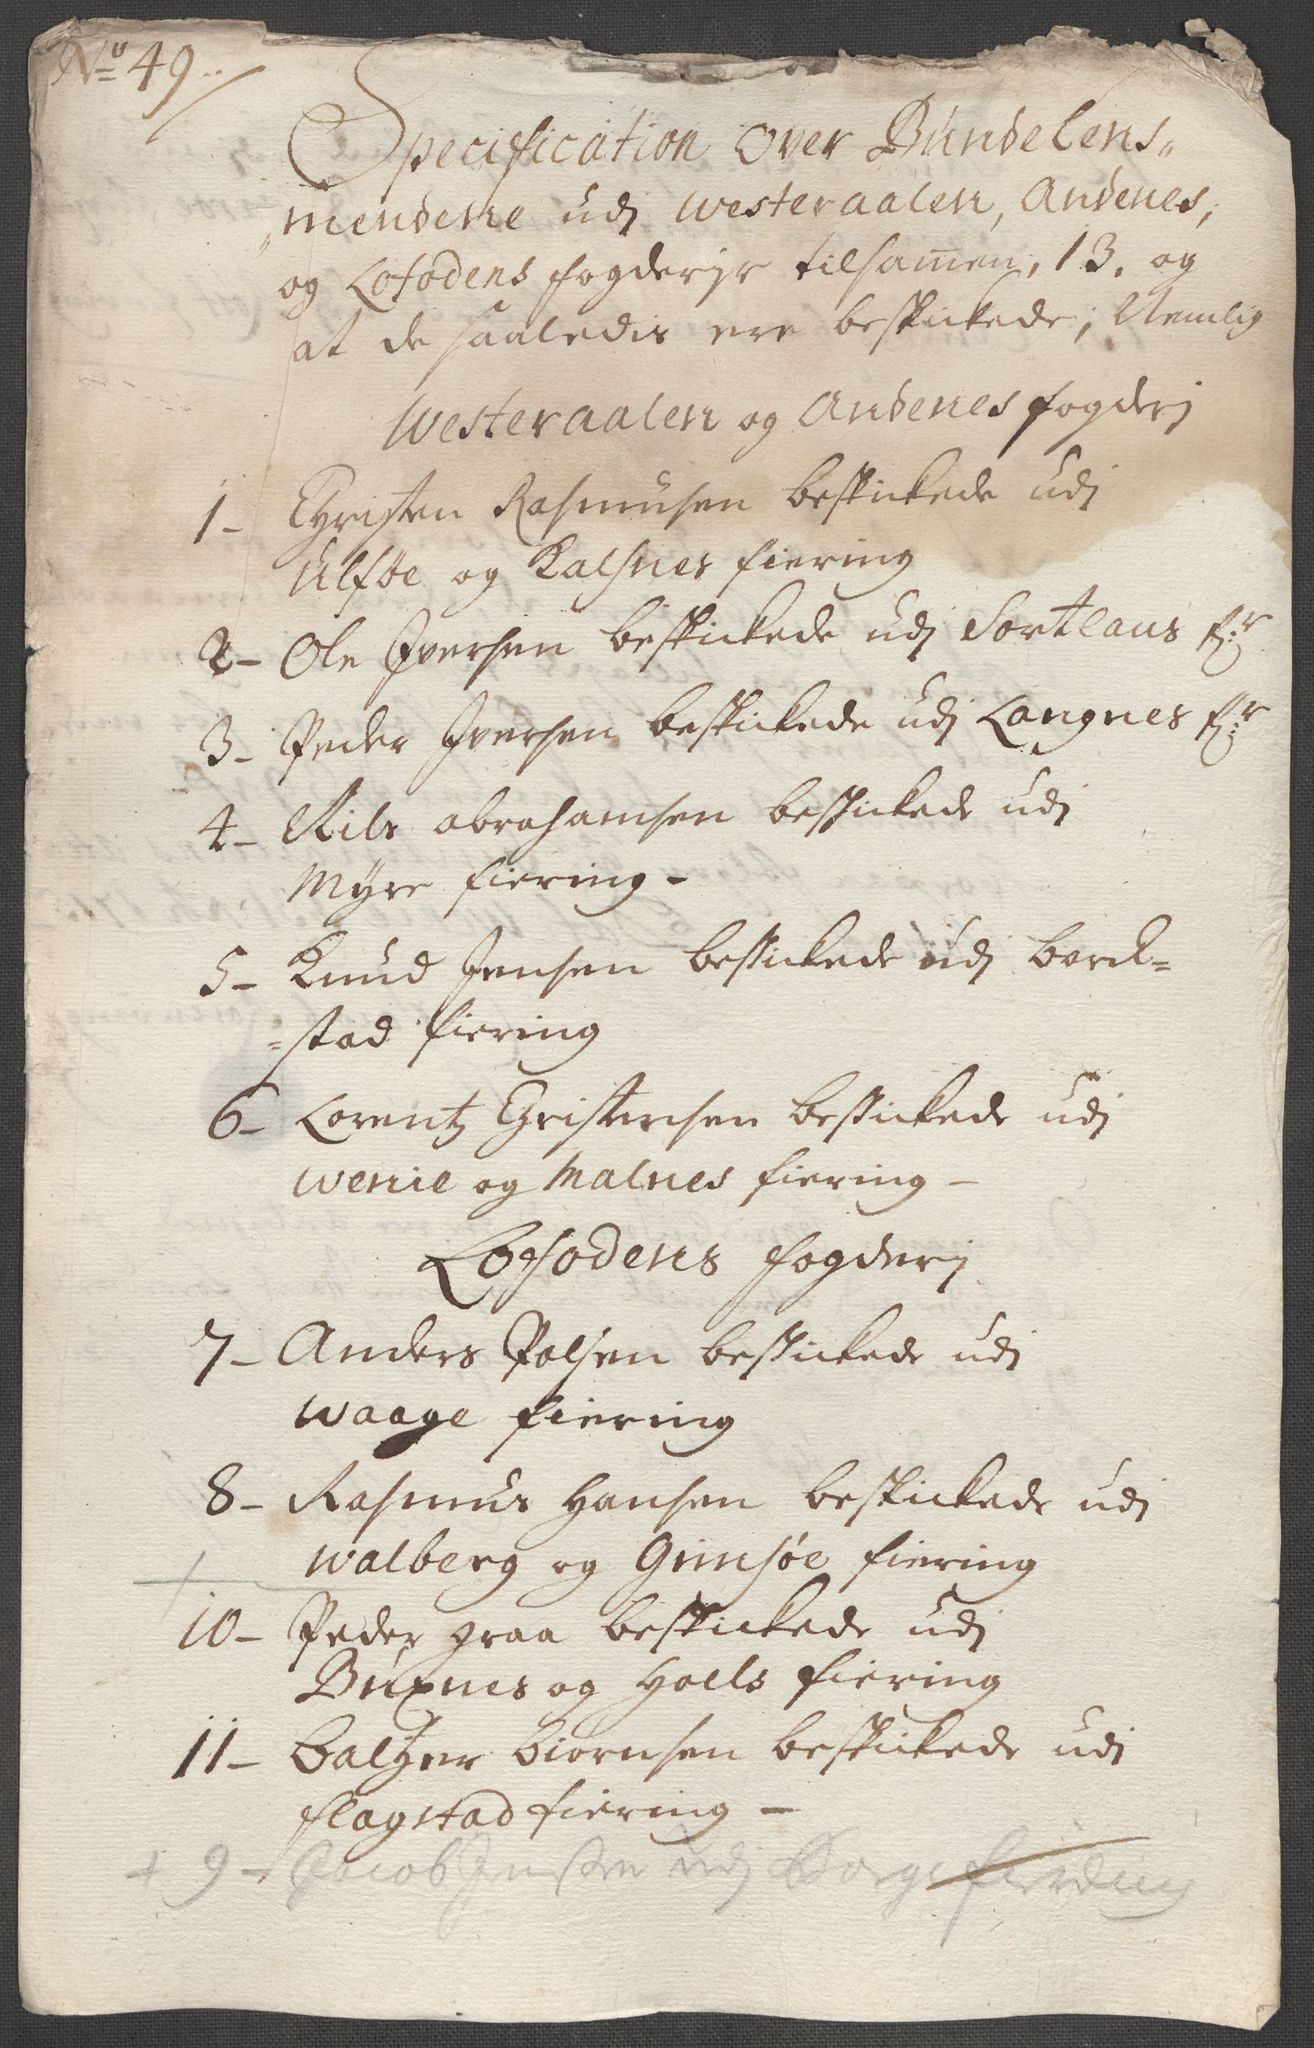 No 49
Specification Over Bundelens-
mendene udj Westeraalen, Andenes,
og Lofodens fogderjr tilsamen, 13. og
at de saaledis ere beskickede, Nemlig
Westeraalen og Andenes fogderj
1- Christen Rasmusen beskickede udj
Ulføe og Kalsnes fiering
2- Ole Iversen beskickede udj Sortlans f:r
3- Peder Iversen beskickede udj Langnes f:r
4- Nils abrahamsen beskickede udj
Myre fiering-
5- Knud Jensen beskickede udj Bord-
=stad fiering
6- Lorentz Christensen beskickede udj
Wenie og Malnes fiering-
Lofodens fogderj
7- Anders Polsen beskickede udj
Waage fiering
8- Rasmus Hansen beskickede udj
Walberg og Gimsøe fiering
10- Peder graa beskickede udj
Buxnes og Hoels fiering
11- Baltzer Biørnsen beskickede udj
flagstad fiering-
+ 9- Jacob Jensen udj Borge fierding